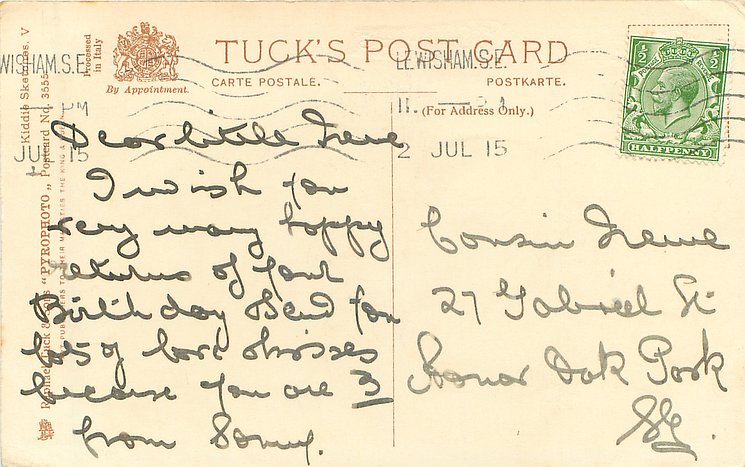 TUCK'S POST CARD
CARTE POSTALE. POSTKARTE.
(For Address Only.)
By Appointment.
Processed
in Italy
Kiddie Sketches. V
Raphael Tuck & Sons "PYROPHOTO" Postcard No. 3555
LEWISHAM.S.E.
2 JUL 15
WISHAM.S.E.
PM
JUL 15
½ ½
HALFPENNY
Dear little Irene
I wish you
very many happy
returns of your
Birthday I send you
lots of love & kisses
because you are 3
from Sonny.
Cousin Irene
27 Gabriel St
Honor Oak Park
SE.